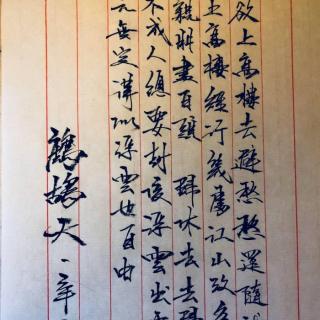 欲上高樓去避愁愁還隨
上高樓經行幾處江山改多
親朋盡白頭 歸休去去歸
不成人總要封侯浮雲出處
元無定得似浮雲也自由
鷓鴣天·辛